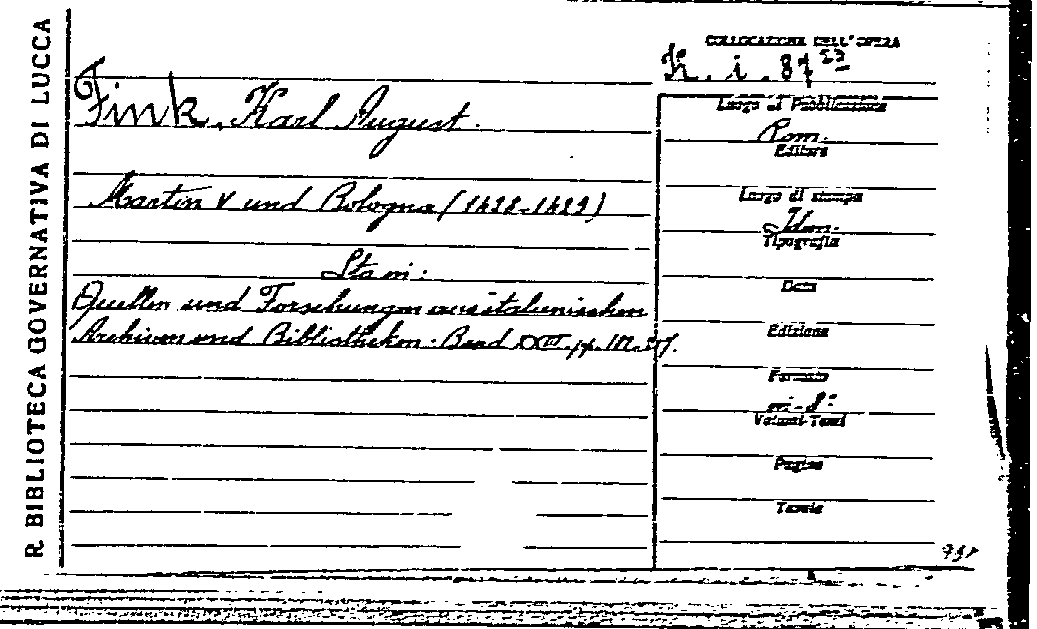 R. BIBLIOTECA GOVERNATIVA DI LUCCA
Fink, Karl August.
Martin V und Bologna (1428-1429)
Sta in:
Quellen und Forschungen aus italienischen
Archiven und Bibliotheken. Band XXIII. pp.
COLLOCAZIONE DELL'OPERA
i. 87
Luogo di Pubblicazione
Rom.
Editore
Luogo di stampa
Idem.
Tipografia
Data
Edizione
Formato
in-8°
Volumi-Tomi
Pagine
Tavole